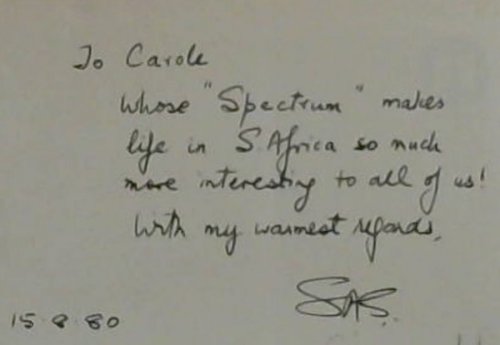 To Carole
Whose "Spectrum" makes
life in S. Africa so much
more interesting to all of us!
With my warmest regards,
SAS.
15.8.80